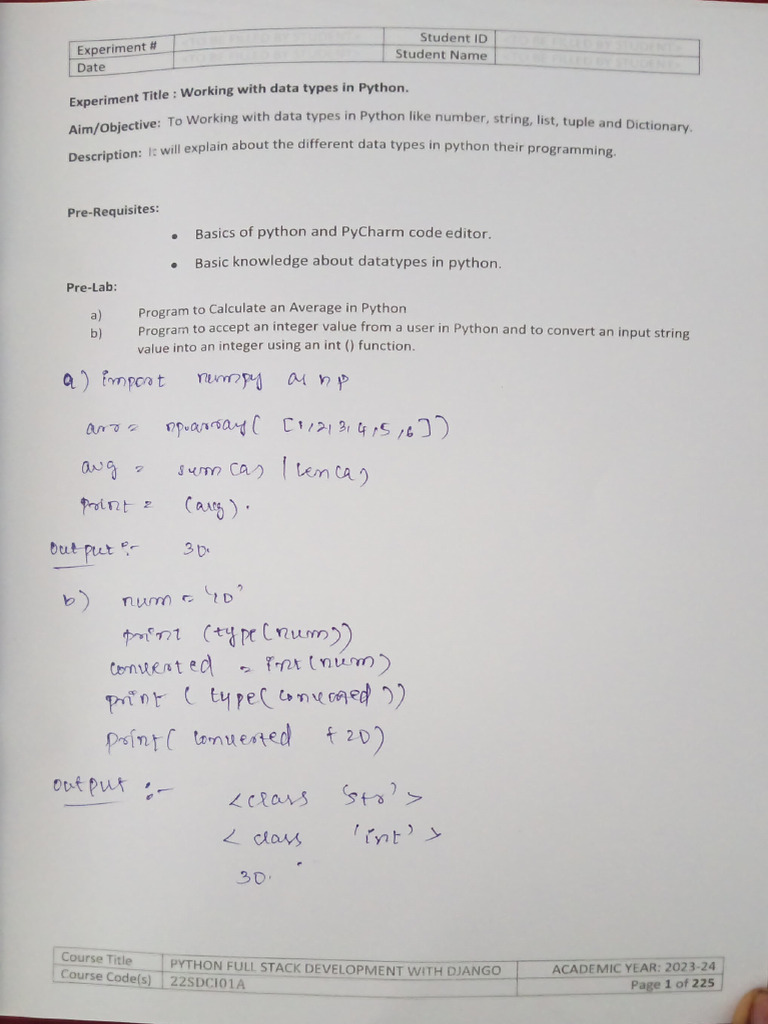 Experiment #
Student ID
<TO BE FILLED BY STUDENT>
Date
Student Name
Experiment Title : Working with data types in Python.
Aim/Objective: To Working with data types in Python like number, string, list, tuple and Dictionary.
Description: It will explain about the different data types in python their programming.
Pre-Requisites:
• Basics of python and PyCharm code editor.
• Basic knowledge about datatypes in python.
Pre-Lab:
a) Program to Calculate an Average in Python
b) Program to accept an integer value from a user in Python and to convert an input string
value into an integer using an int () function.
a) import numpy as np
arr = np.array( [1,2,3,4,5,6])
avg = sum(a) / len(a)
print = (avg).
Output :- 30.
b) num = '10'
print (type(num))
converted = int(num)
print ( type( converted ))
print( converted + 20)
Output :-
<class 'str'>
< class 'int' >
30.
Course Title PYTHON FULL STACK DEVELOPMENT WITH DJANGO ACADEMIC YEAR: 2023-24
Course Code(s) 22SDCI01A Page 1 of 225